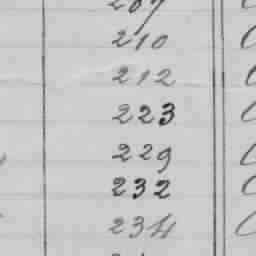 207
210
212
223
229
232
234